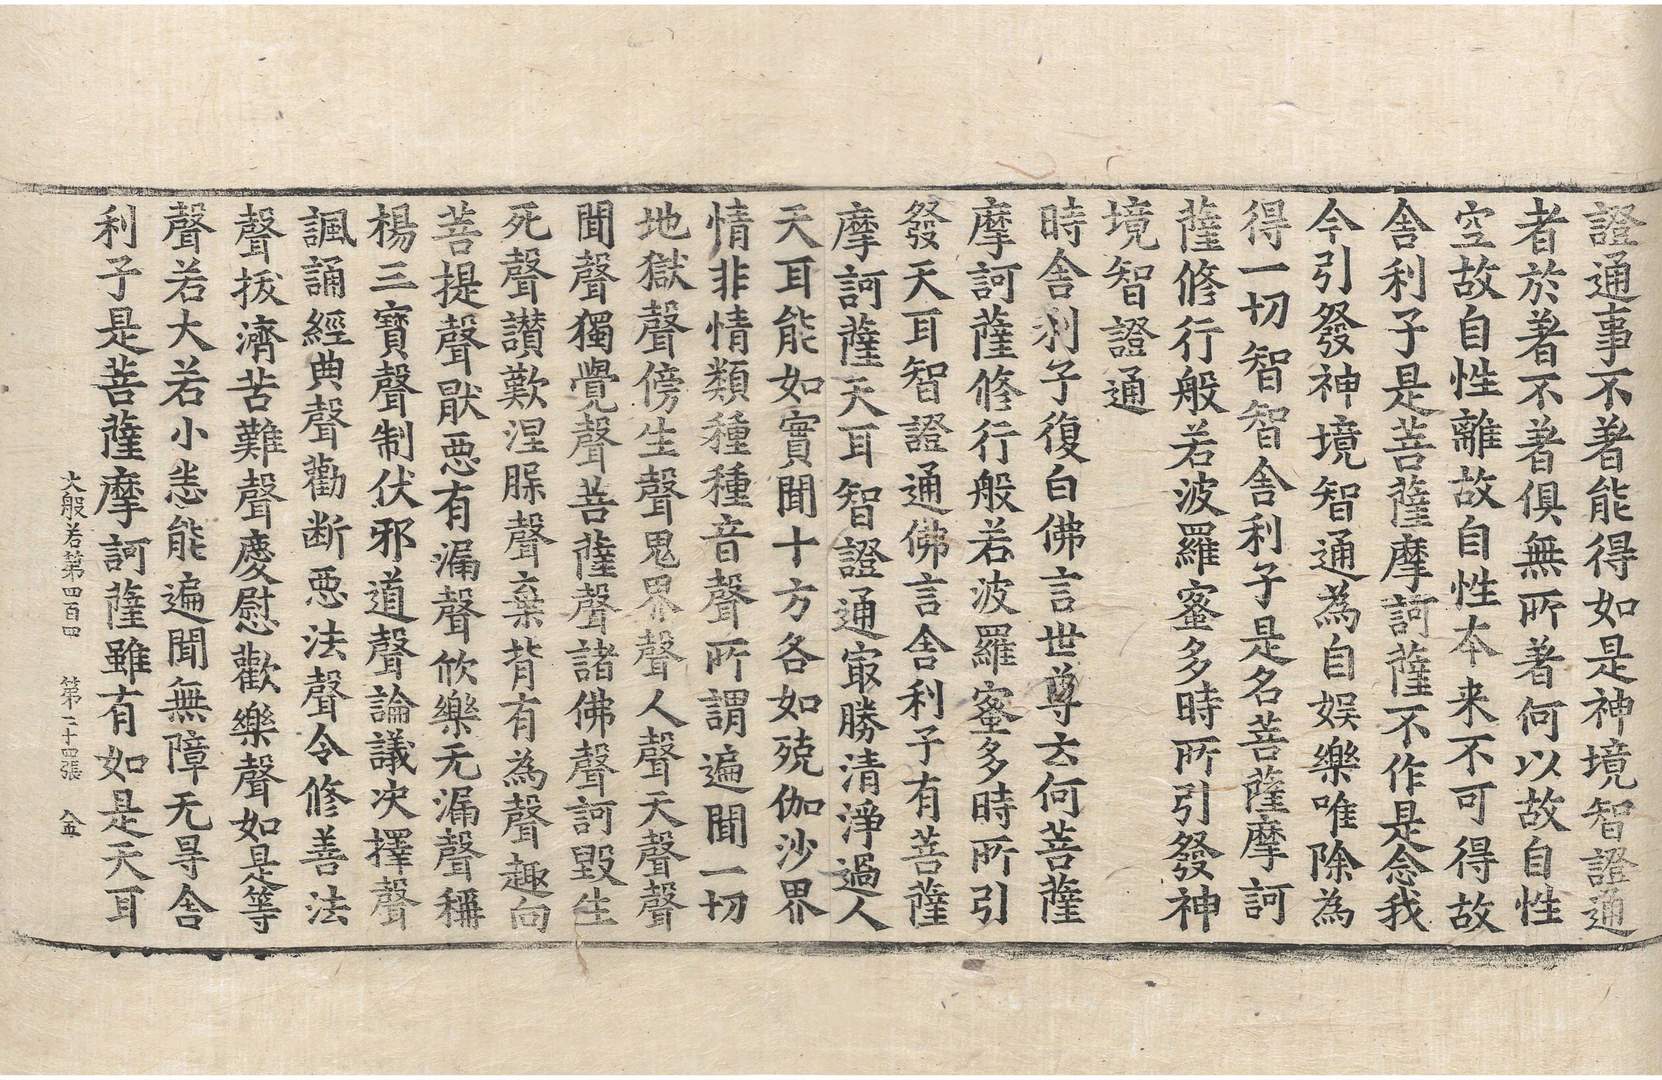 證通事不著能得如是神境智證通
者於著不著俱無所著何以故自性
空故自性離故自性本来不可得故
舎利子是菩薩摩訶薩不作是念我
今引發神境智通為自娛樂唯除為
得一切智智舎利子是名菩薩摩訶
薩修行般若波羅蜜多時所引發神
境智證通
時舎利子復白佛言世尊云何菩薩
摩訶薩修行般若波羅蜜多時所引
發天耳智證通佛言舎利子有菩薩
摩訶薩天耳智證通㝡勝清淨過人
天耳能如實聞十方各如殑伽沙界
情非情類種種音聲所謂遍聞一切
地獄聲傍生聲鬼界聲人聲天聲聲
聞聲獨覺聲菩薩聲諸佛聲訶毀生
死聲讃歎涅槃聲棄背有為聲趣向
菩提聲猒惡有漏聲欣樂无漏聲稱
楊三寶聲制伏邪道聲論議决擇聲
諷誦經典聲勸断惡法聲令修善法
聲拔濟苦難聲慶慰歡樂聲如是等
聲若大若小悉能遍聞無障无㝵舎
利子是菩薩摩訶薩雖有如是天耳
大般若第四百四 第二十四張 金